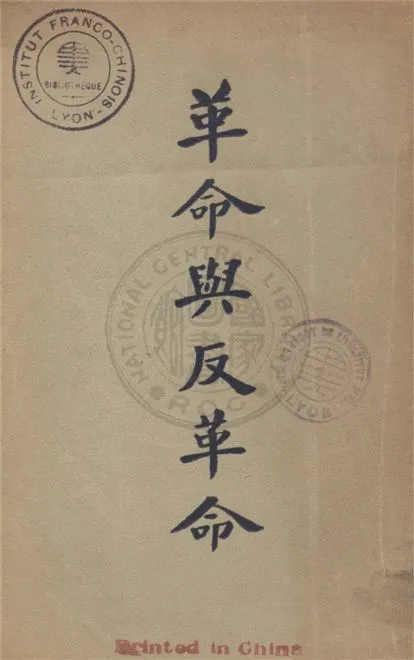 INSTITUT FRANCO-CHINOIS
BIBLIOTHEQUE
LYON
革命與反革命
NATIONAL CENTRAL LIBRARY
R.O.C.
LYON
Printed in China